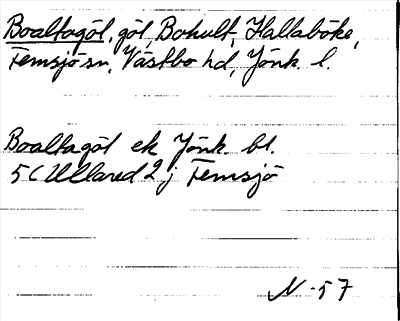 Boaltagöl, göl Bohult, Hallaböke,
Femsjö sn, Västbo hd, Jönk. l.
Boaltagöl ek Jönk. bl.
5C Ullared 2 j Femsjö
N-57